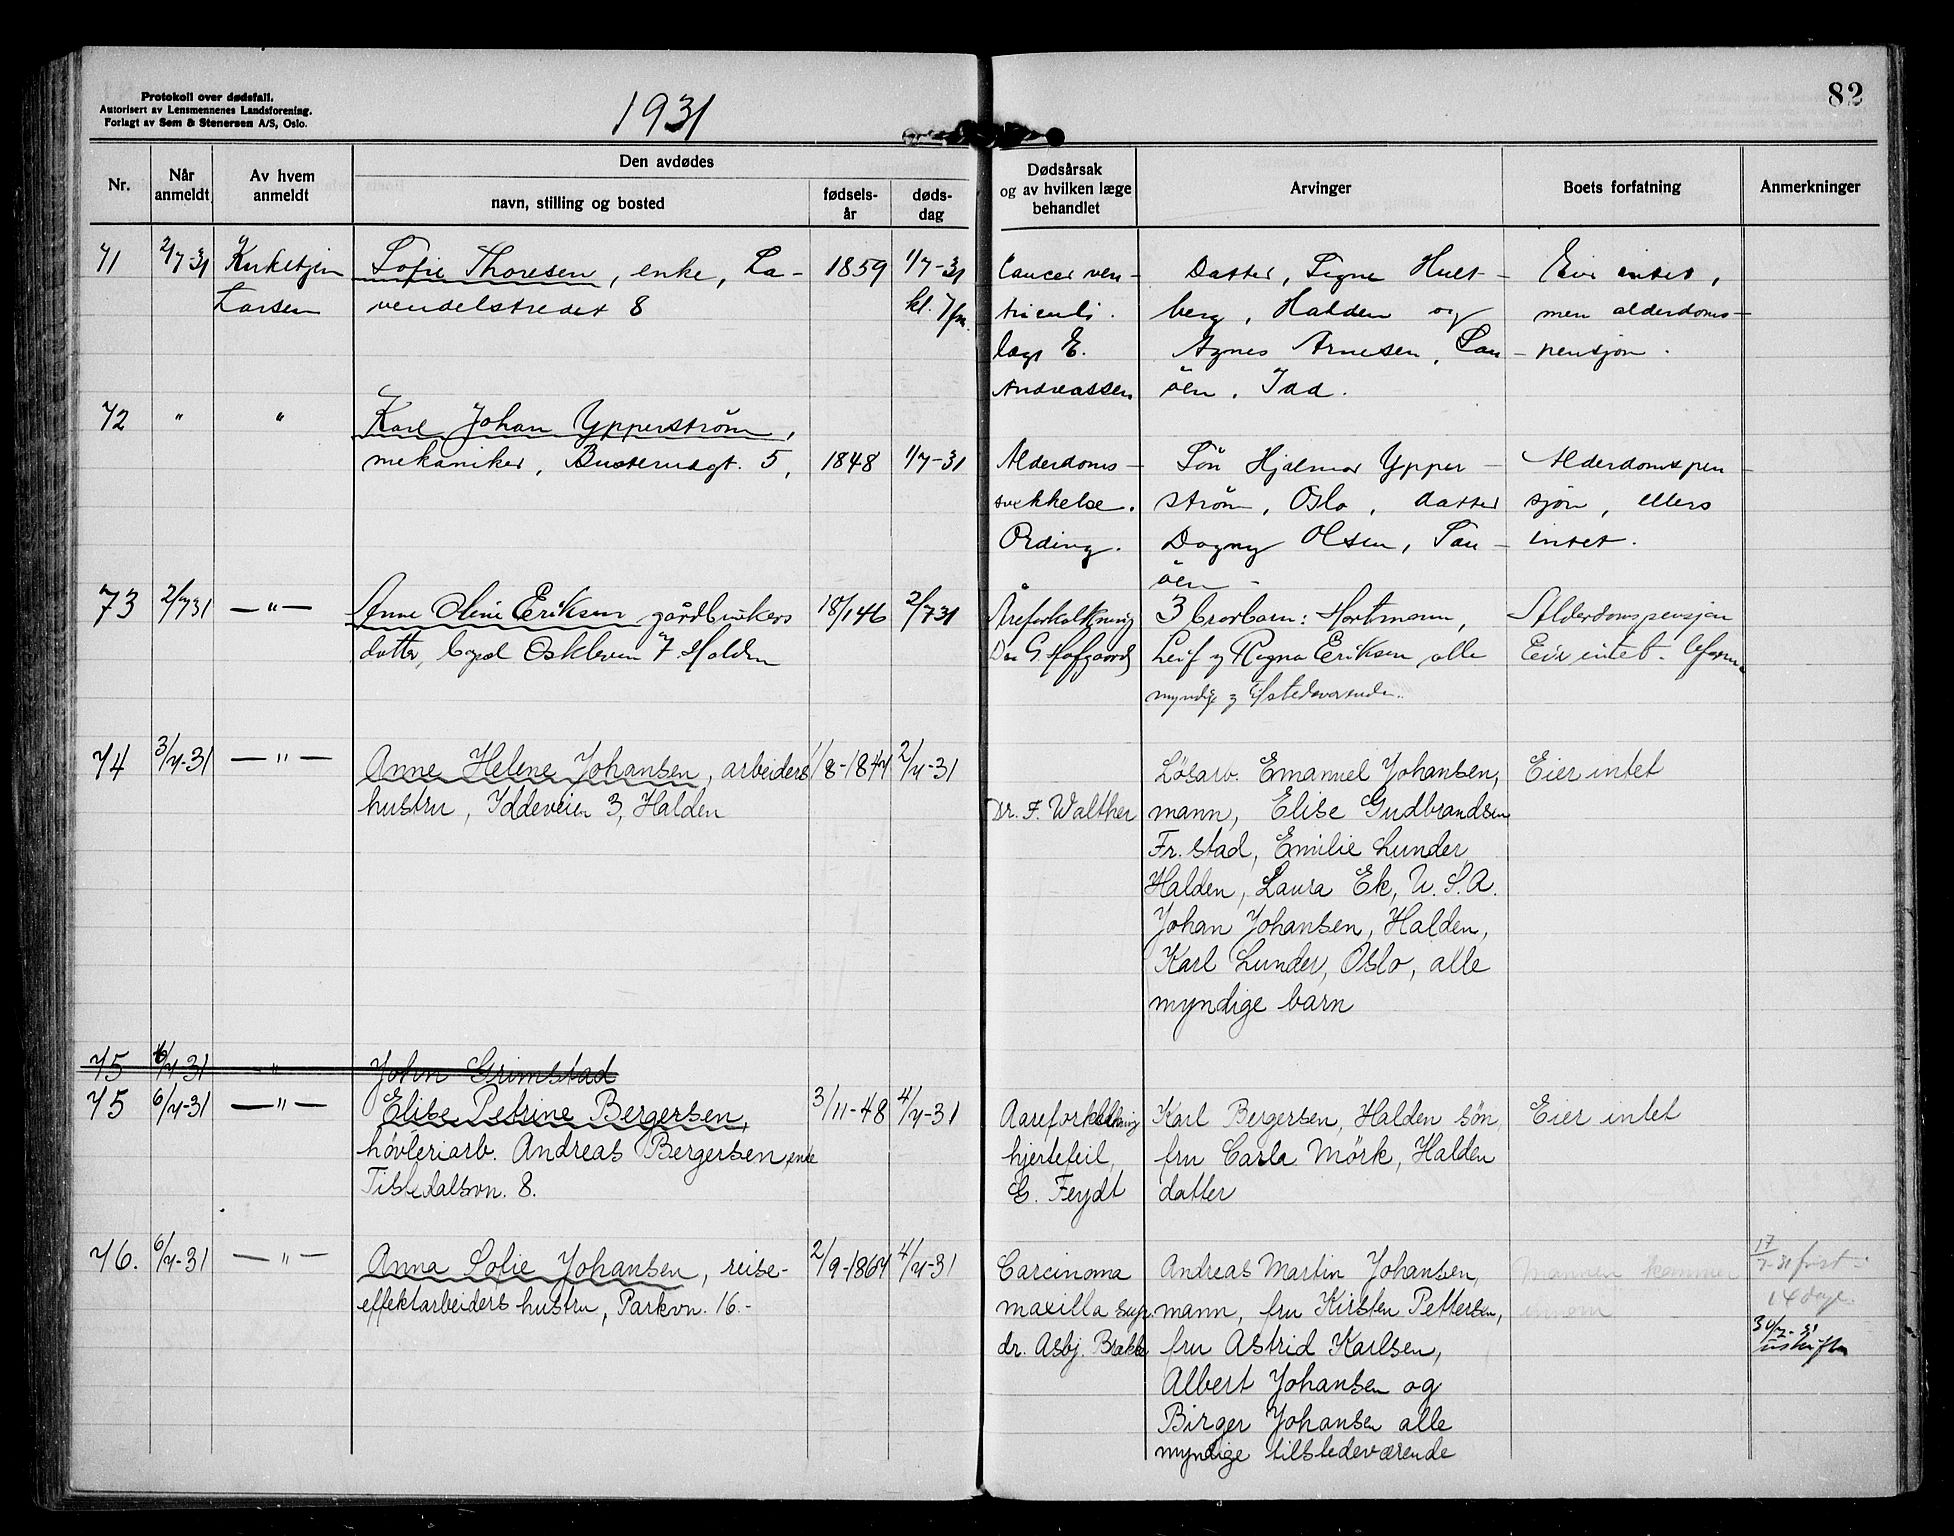 Protokoll over dødsfall.
Autorisert av Lensmennenes Landsforening.
Forlagt av Sem & Stenersen A/S, Oslo.
1931
82
Nr.
Når anmeldt
Av hvem anmeldt
Den avdødes
navn, stilling og bosted
fødsels-år
døds-dag
Dødsårsak og av hvilken læge behandlet
Arvinger
Boets forfatning
Anmerkninger
71 2/7-31 Kirketjen Sofie Thoresen, enke, La- 1859 1/7-31 Cancer ven- Datter, Signe Hult- Eier intet,
Larsen vendelstredet 8 kl. 7 fm. triculi. berg, Halden og men alderdoms-
læge E. Agnes Arnesen, Sau- pensjon.
Andreassen öen, Idd.
72 " " Karl Johan Ypperström,
mekaniker, Busterudgt. 5, 1848 1/7-31 Alderdoms- Sön Hjalmar Ypper- Alderdomspen-
svekkelse. ström, Oslo, datter sjon, ellers
Ording. Dagny Olsen, Sau- intet.
öen -
73 2/7 31 — " — Anne Oline Eriksen gårdbrukers 18/1 46 2/7 31 Åreforkalkning 3 brorbarn: Hartmann, Alderdomspensjon
datter, Oskleven 7 Halden Dr G. Hofgaard Leif og Ragna Eriksen alle Eier intet.
myndige og
74 3/7-31 — " — Anne Helene Johansen, arbeiders 1/8-1844 2/7-31 Lösarb. Emanuel Johansen, Eier intet
hustru, Iddeveien 3, Halden Dr. F. Walther mann, Elise Gudbrandsen
Fr.stad, Emilie Lunder
Halden, Laura Ek, U.S.A.
Johan Johansen, Halden,
Karl Lunder, Oslo, alle
myndige barn
75 6/7-31 " John Grimstad
75 6/7-31 — " — Elise Petrine Bergersen, 3/11-48 4/7-31 Aareforkalkning Karl Bergersen, Halden sön, Eier intet
høvleriarb. Andreas Bergersen, enke hjertefeil, fru Carla Mörk, Halden
Tistedalsvn. 8. E. Feydt datter
76. 6/7-31 — " — Anna Sofie Johansen, reise- 2/9-1864 4/7-31 Carcinoma Andreas Martin Johansen, Mannen kommer 17/7-31 frist
effektarbeiders hustru, Parkvn. 16.- maxilla sup. mann, fru Kirsten Pettersen, 14 dage.
dr. Asbj. Brække fru Astrid Karlsen,
Albert Johansen og
Birger Johansen alle
myndige tilstedeværende